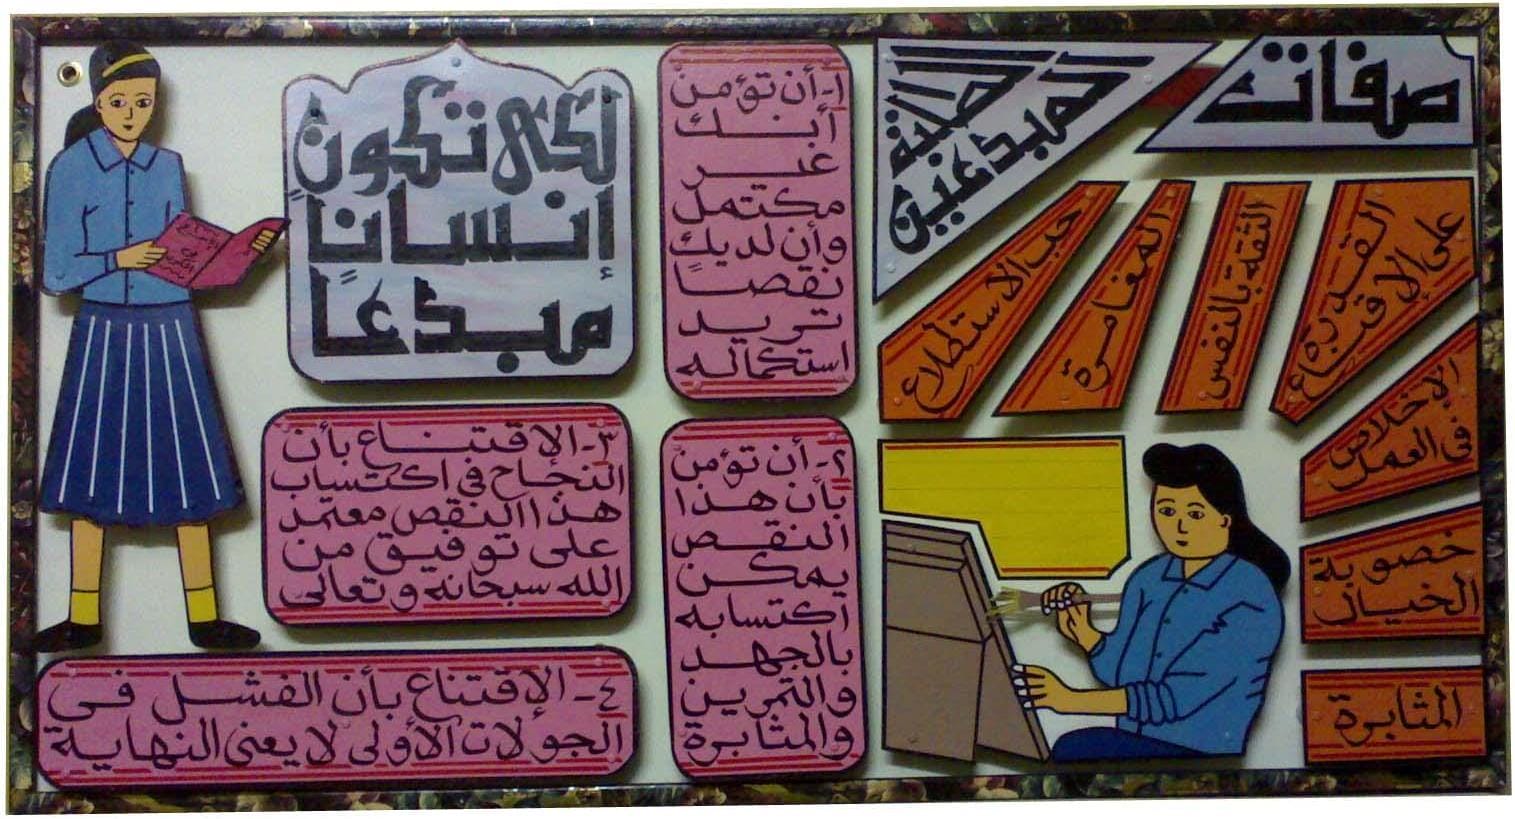 صفات
الطلبة
المبدعين
القدرة
على الإقتناع
الثقة بالنفس
المغامرة
حب الاستطلاع
الإخلاص
في العمل
خصوبة
الخيال
المثابرة
لكي تكون
إنساناً
مبدعاً
١- أن تؤمن
أنك
غير
مكتمل
وأن لديك
نقصاً
تريد
استكماله
٢- أن تؤمن
بأن هذا
النقص
يمكن
اكتسابه
بالجهد
والتمرين
والمثابرة
٣- الإقتناع بأن
النجاح في اكتساب
هذا النقص معتمد
على توفيق من
الله سبحانه وتعالى
٤- الإقتناع بأن الفشل في
الجولات الأولى لا يعني النهاية